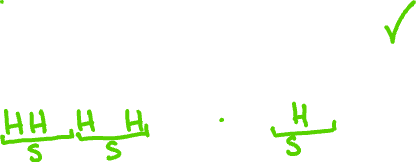 ✓
HH H H . H
S S S